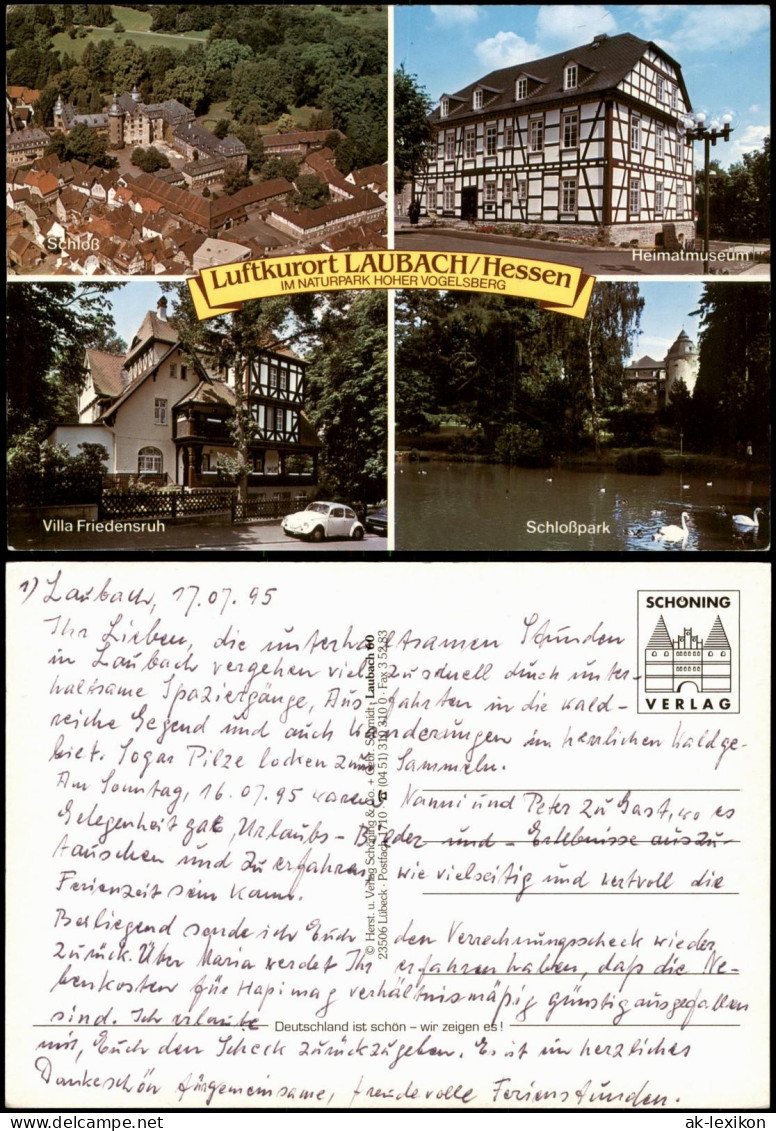 Schloß
Heimatmuseum
Luftkurort LAUBACH/Hessen
IM NATURPARK HOHER VOGELSBERG
Villa Friedensruh
Schloßpark
1) Laubach, 17.07.95
Ihr Lieben, die unterhaltsamen Stunden
in Laubach vergehen viel zu schnell durch unter-
haltsame Spaziergänge, Ausfahrten in die wald-
reiche Gegend und auch Wanderungen im herrlichen Waldge-
biet. Sogar Pilze locken zum Sammeln.
Am Sonntag, 16.07.95 waren Nanni und Peter zu Gast, wo es
Gelegenheit gab, Urlaubs-Bilder und -Erlebnisse auszu-
tauschen und zu erfahren, wie vielseitig und wertvoll die
Ferienzeit sein kann.
Beiliegend sende ich Euch den Verrechnungsscheck wieder
zurück. Über Maria werdet Ihr erfahren haben, daß die Ne-
benkosten für Hapimag verhältnismäßig günstig ausgefallen
sind. Ich erlaube
mir, Euch den Scheck zurückzugeben. Es ist ein herzliches
Dankeschön für gemeinsame, freudevolle Ferienstunden.
© Herst. u. Verlag Schöning & Co. + Gebr. Schmidt · Laubach 60
23506 Lübeck · Postfach 1710 · (04 51) 310 310 0 · Fax 3 52 83
SCHÖNING
VERLAG
Deutschland ist schön – wir zeigen es!
www.ak-ansichtskarten.de
ak-lexikon